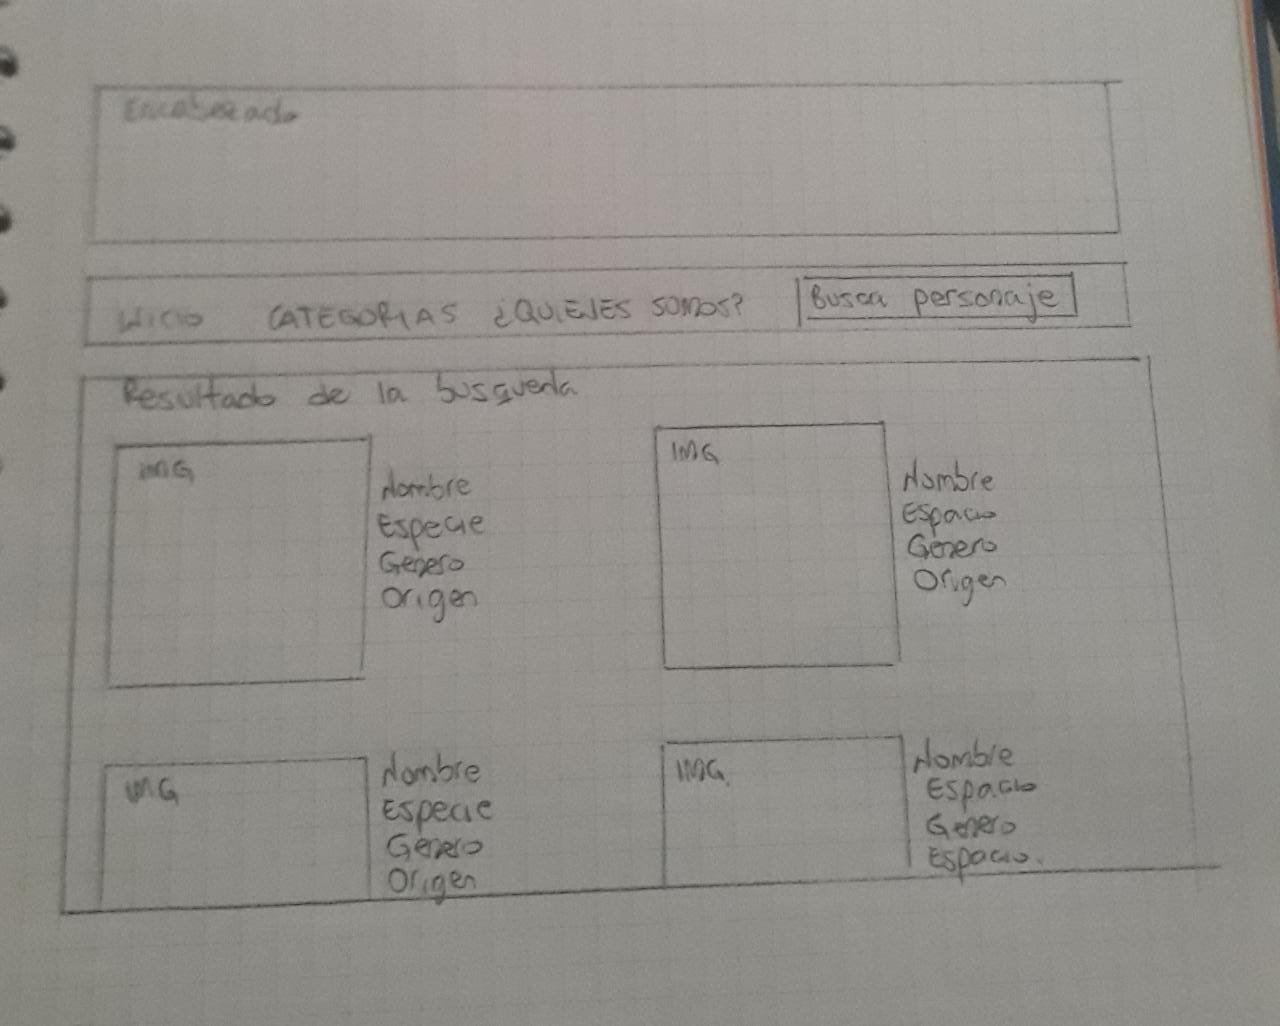 Encabezado
Inicio CATEGORIAS ¿QUIENES SOMOS? Busca personaje
Resultado de la busqueda
IMG
Nombre
Especie
Genero
Origen
IMG
Nombre
Espacio
Genero
Origen
IMG
Nombre
Especie
Genero
Origen
IMG
Nombre
Espacio
Genero
Espacio.